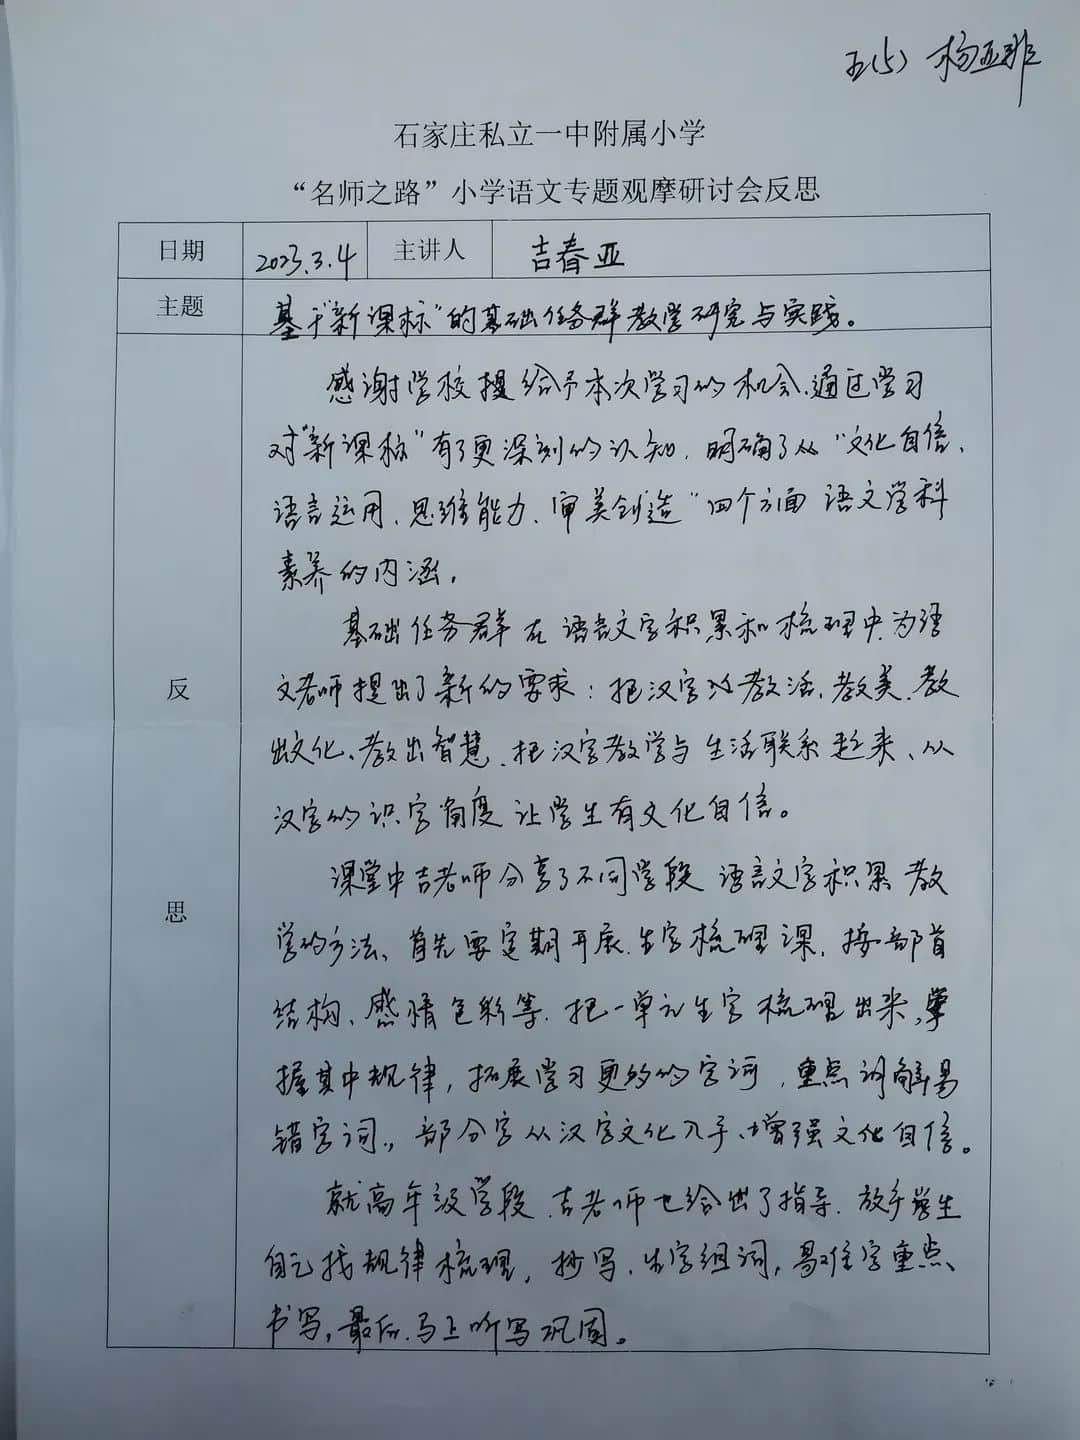 五(5) 杨亚非
石家庄私立一中附属小学
“名师之路”小学语文专题观摩研讨会反思
日期 2023.3.4 主讲人 吉春亚
主题 基于“新课标”的基础任务群教学研究与实践。
反思
感谢学校提给予本次学习的机会,通过学习
对“新课标”有了更深刻的认知,明确了从“文化自信、
语言运用、思维能力、审美创造”四个方面语文学科
素养的内涵。
基础任务群在语言文字积累和梳理中为语
文老师提出了新的要求:把汉字教活、教美、教
出文化、教出智慧,把汉字教学与生活联系起来、从
汉字的识字角度让学生有文化自信。
课堂中吉老师分享了不同学段语言文字积累教
学的方法、首先要定期开展生字梳理课,按部首
结构、感情色彩等,把一单元生字梳理出来,掌
握其中规律,拓展学习更多的字词,重点讲解易
错字词,部分字从汉字文化入手、增强文化自信。
就高年级学段,吉老师也给出了指导,放手学生
自己找规律梳理,抄写、生字组词,易难字重点
书写,最后马上听写巩固。